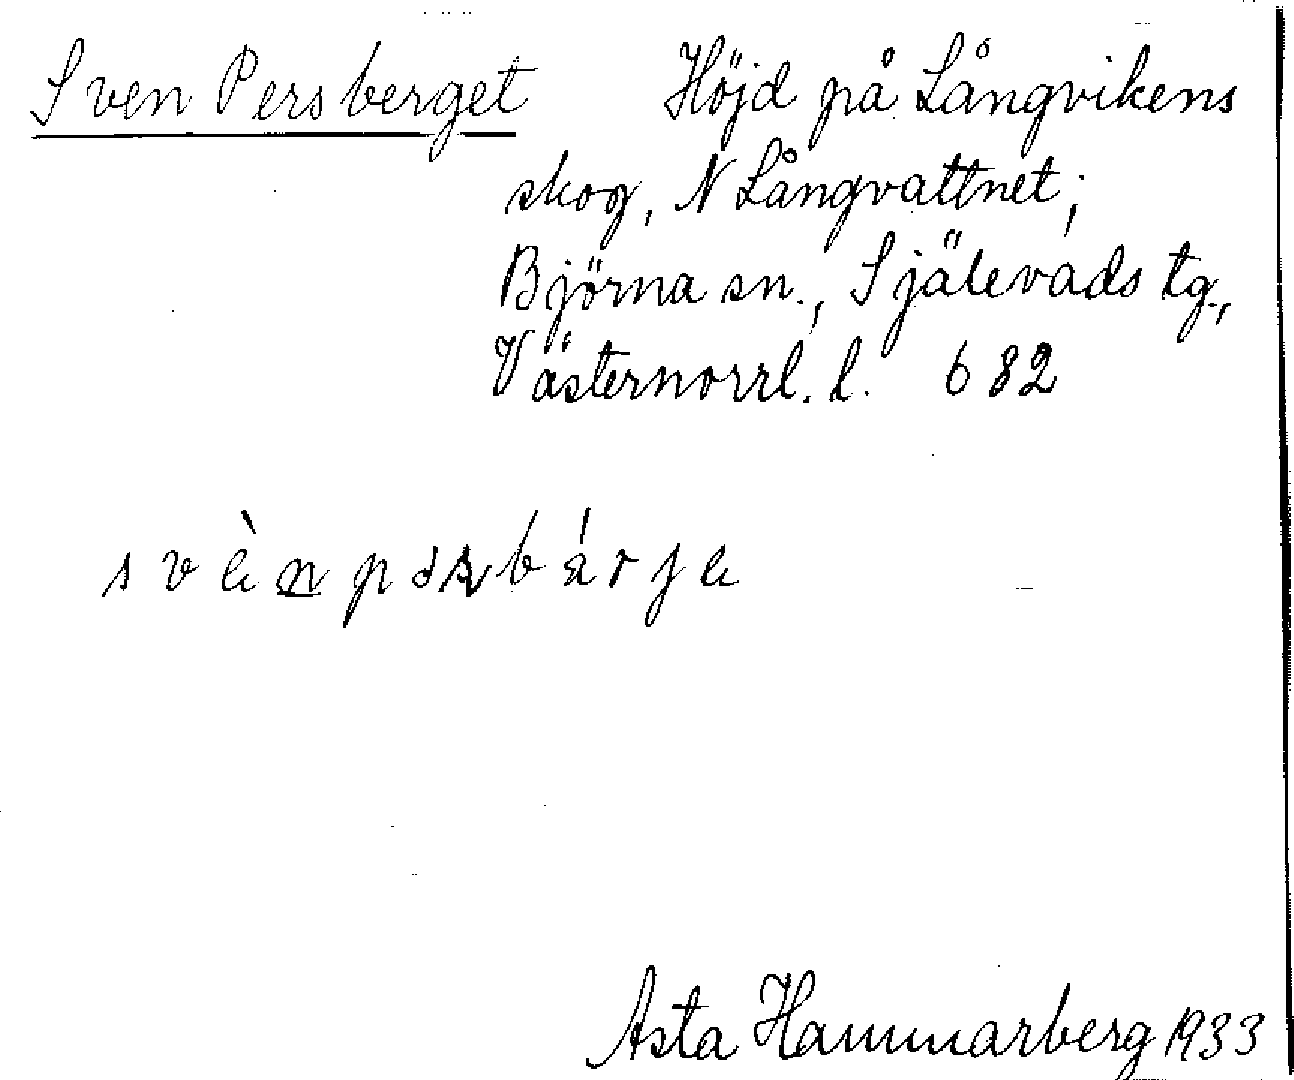 Sven Persberget Höjd på Långvikens
skog, N Långvattnet;
Björna sn., Själevads tg.,
Västernorrl. l. 682
svènpəʂbárje
Asta Hammarberg 1933